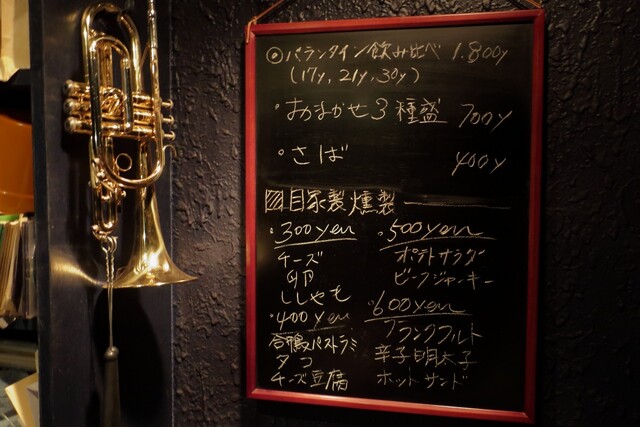 ◎バランタイン飲み比べ 1.800y
(17y, 21y, 30y)
・おまかせ3種盛 700y
・さば 400y
自家製燻製
・300yen
チーズ
卵
ししゃも
・400yen
合鴨パストラミ
タコ
チーズ豆腐
・500yen
ポテトサラダ
ビーフジャーキー
・600yen
フランクフルト
辛子明太子
ホットサンド